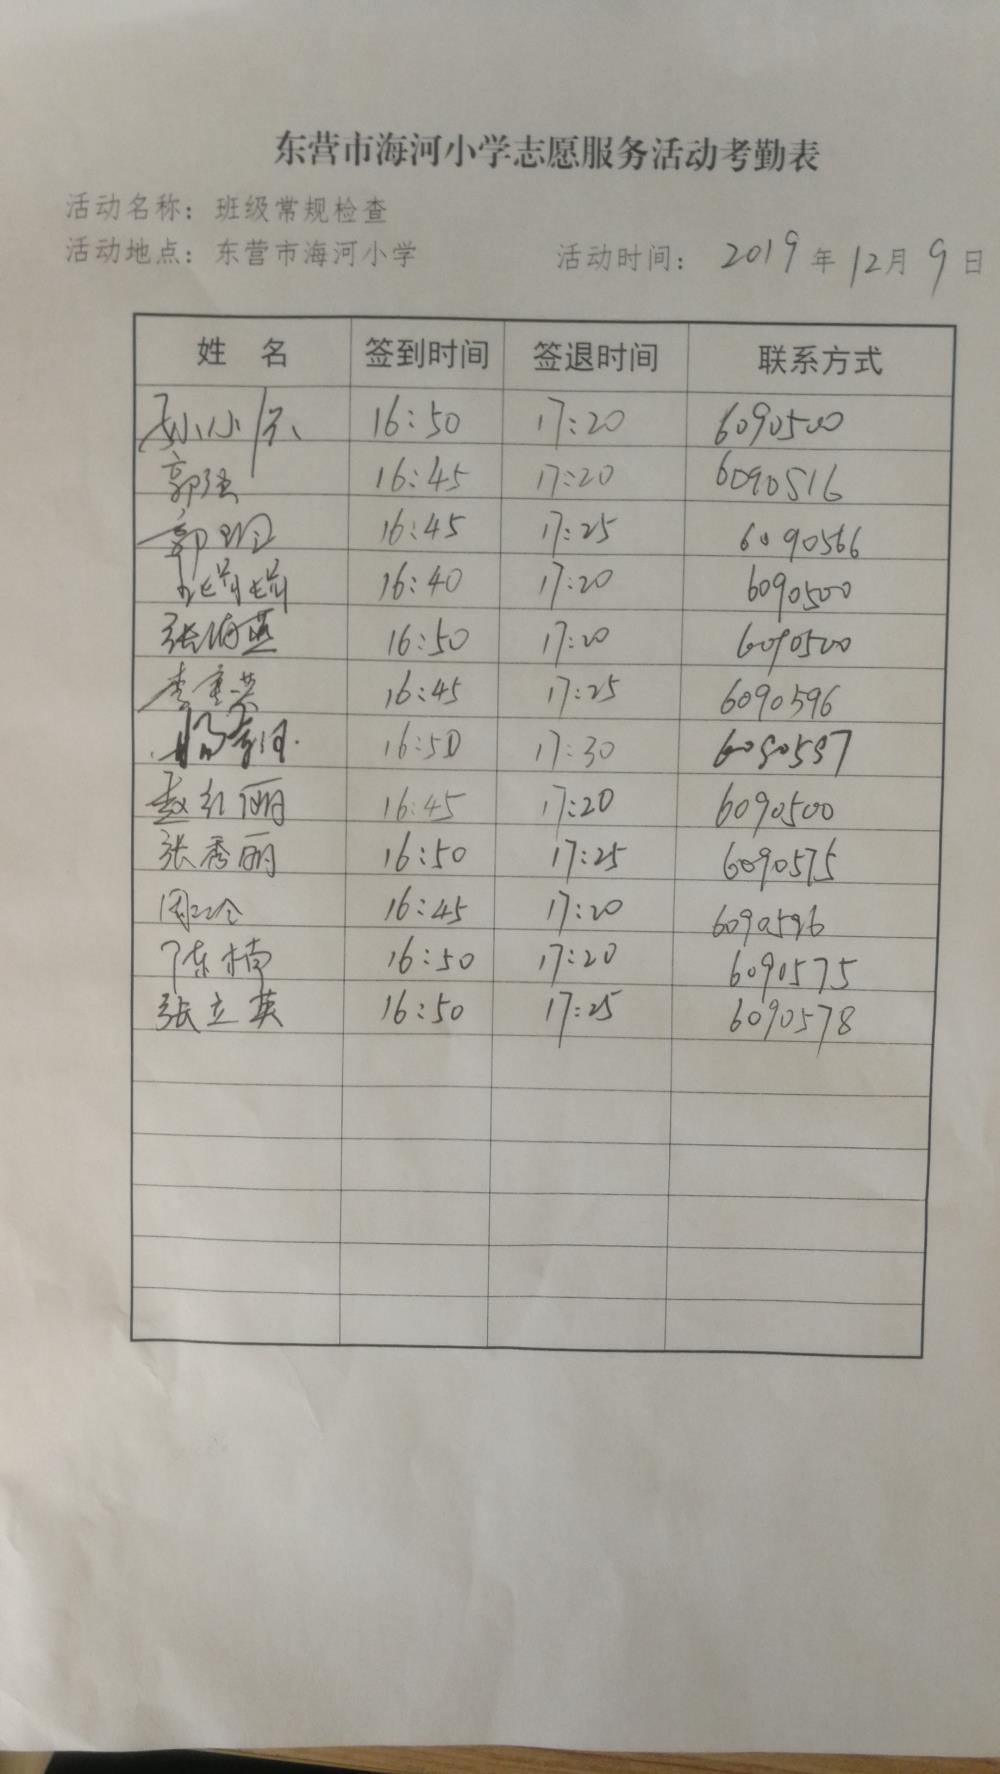 东营市海河小学志愿服务活动考勤表
活动名称：班级常规检查
活动地点：东营市海河小学 活动时间：2019年12月9日
姓 名 签到时间 签退时间 联系方式
孙小 16:50 17:20 6090500
郭强 16:45 17:20 6090516
郭玲 16:45 17:25 6090566
16:40 17:20 6090500
张海燕 16:50 17:20 6090500
李重英 16:45 17:25 6090596
杨 16:50 17:30
赵红丽 16:45 17:20 6090500
张秀丽 16:50 17:25 6090575
周玲 16:45 17:20 6090596
陈楠 16:50 17:20 6090575
张立英 16:50 17:25 6090578